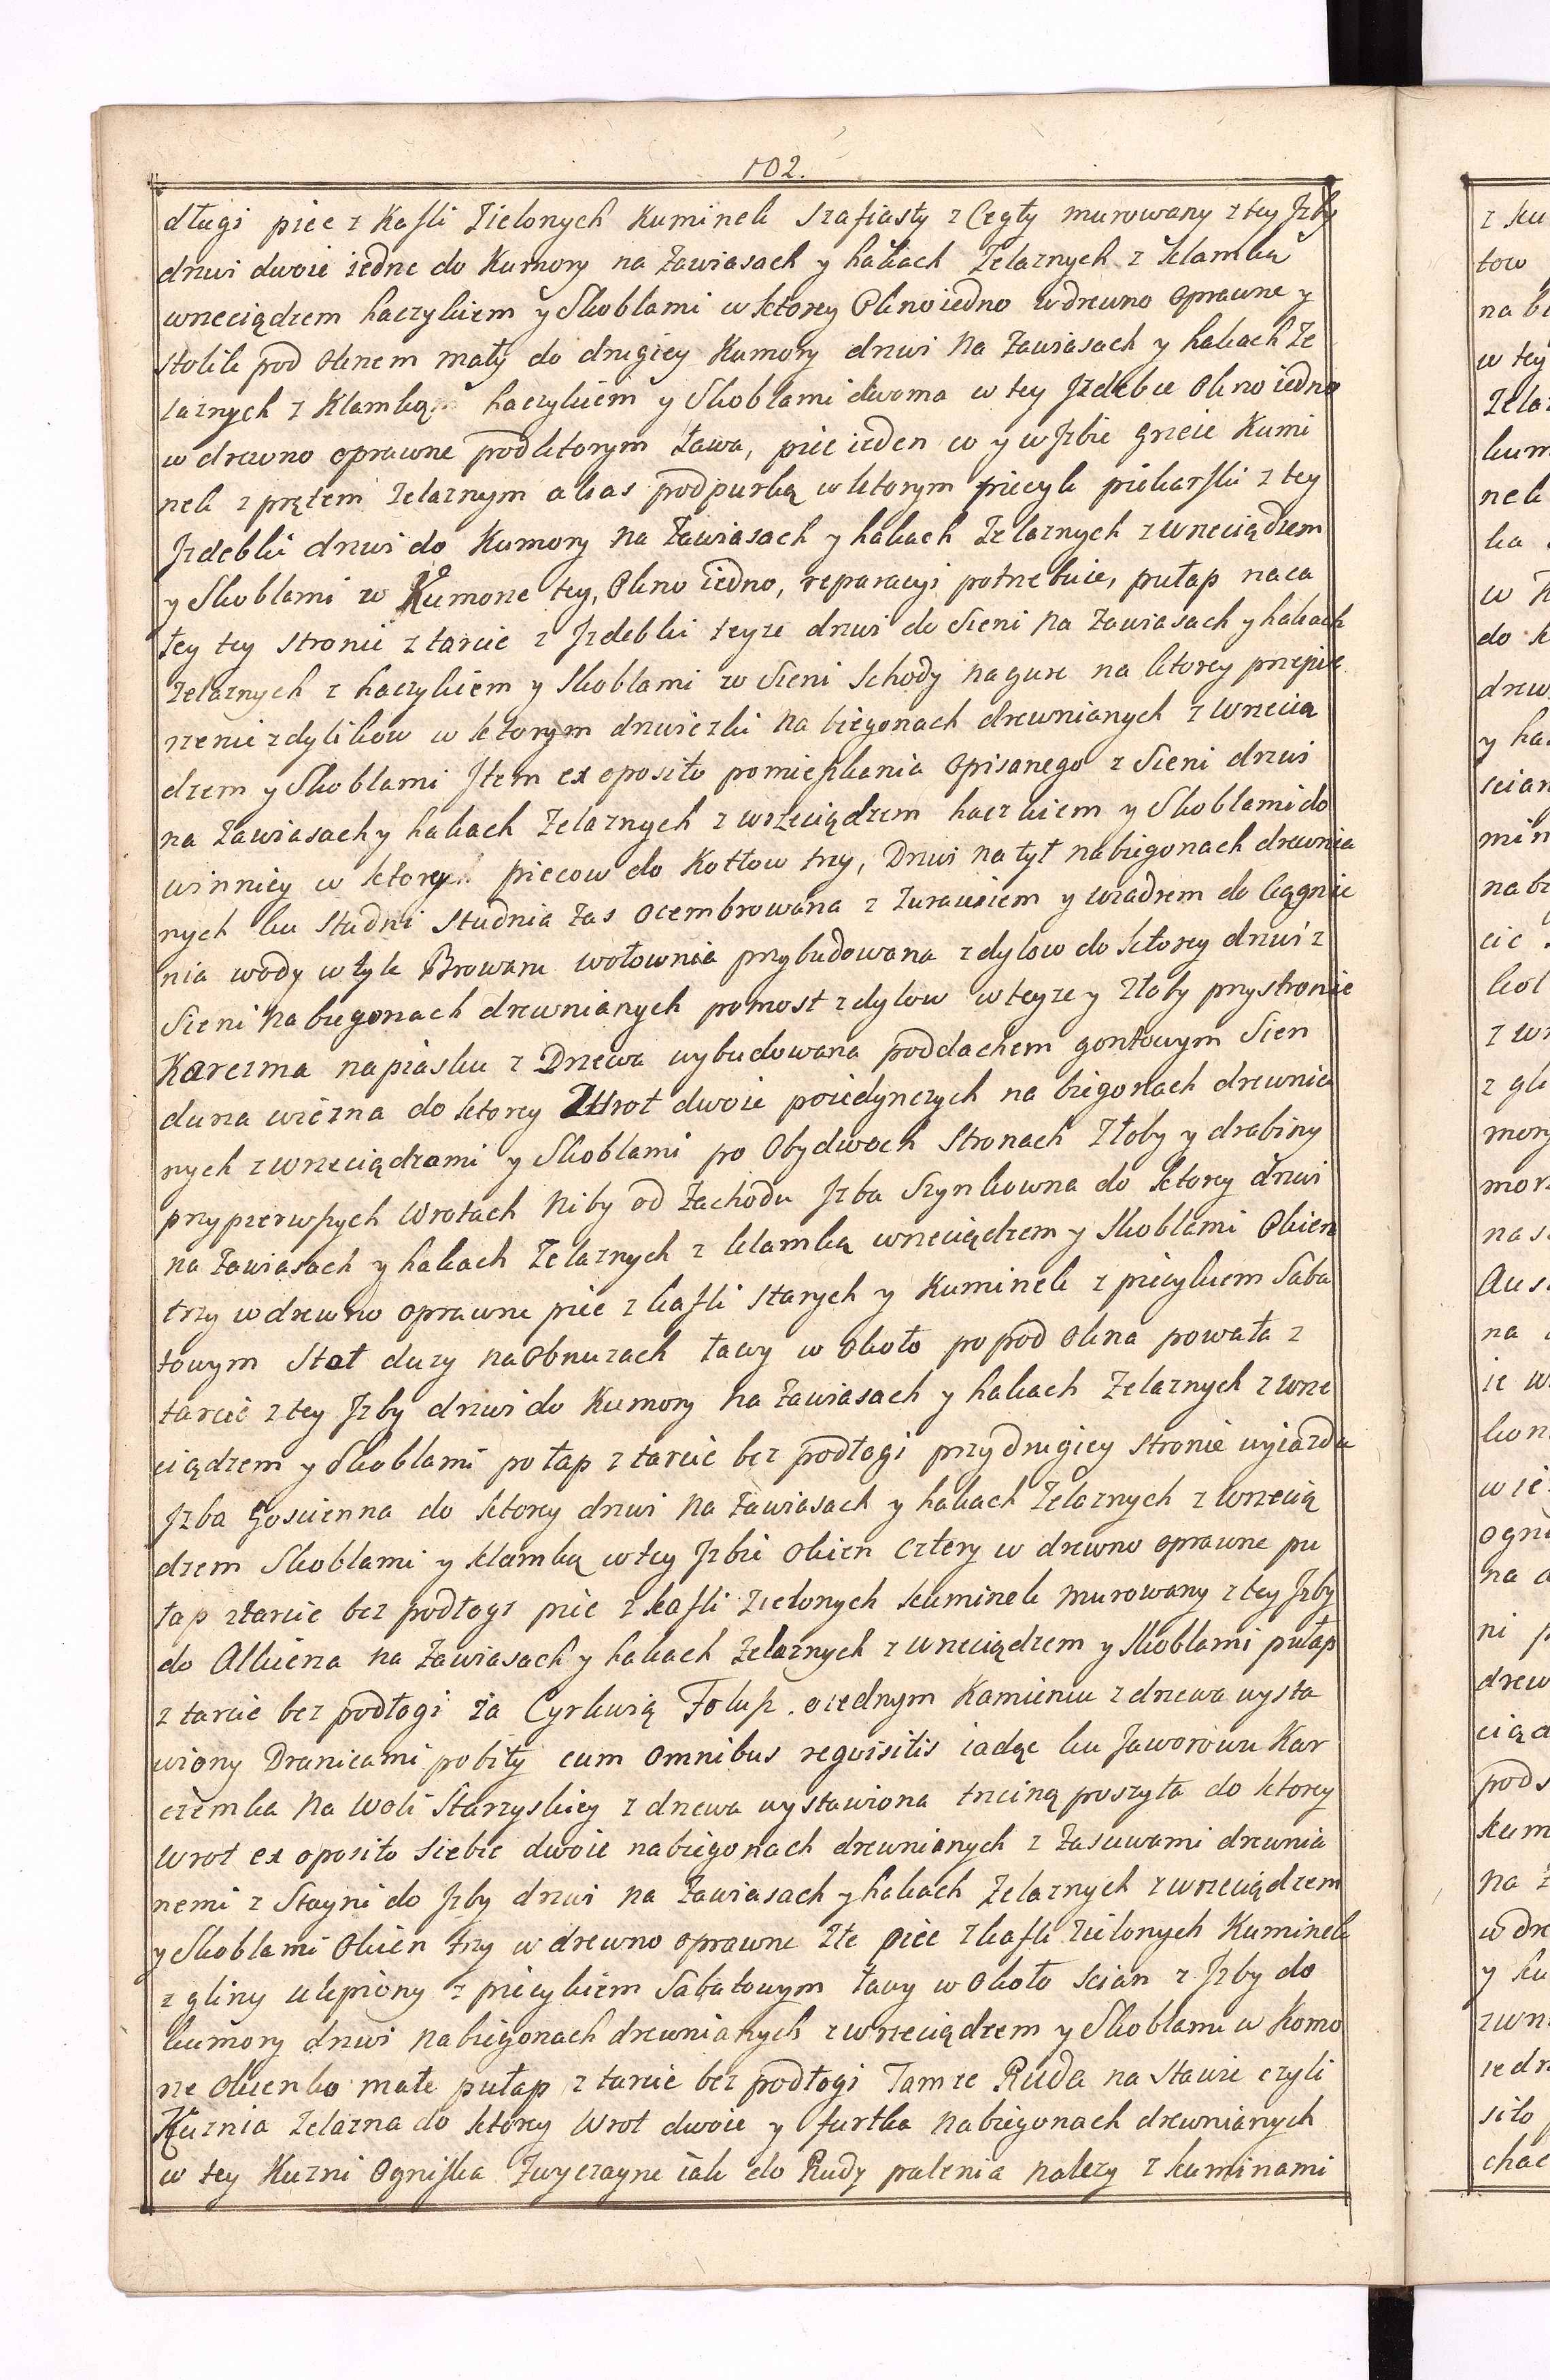 102.
długi piec z Kafli Zielonych Kuminek Szafiasty z Cegły murowany z tey Jzby
drzwi dwoie iedne do Kumory na Zawiasach y hakach Zelaznych z klamką
wrzeciądzem haczykiem y Skoblami w ktorey Okno iedno w drewno oprawne y
stolik pod oknem mały do drugiey Kumory drzwi na Zawiasach y hakach Ze
laznych z Klamką haczykiem y Skoblami dwoma w tey Jzdebce Okno iedno
w drewno oprawne pod ktorym Ława, piec ieden co y w Jzbie grzeie Kumi
nek z prętem zelaznym abas podpurką w ktorym piecyk piekarski z tey
Jzdebki drzwi do Kumory na Zawiasach y hakach Zelaznych z wrzeciądzem
y Skoblami w Kumorze tey, Okno iedno, reparacyi potrzebuie, pułap na ca
łey tey stronie z tarcic z Jzdebki teyze drzwi do Sieni na Zawiasach y hakach
zelaznych z haczykiem y Skoblami w Sieni Schody na gure na ktorey przepie
rzenie z dylikow w ktorym drzwiczki na biegonach drewnianych z wrzecią
dzem y Skoblami Jtem ex oposito pomieszkania Opisanego z Sieni drzwi
na Zawiasach y hakach Zelaznych z wrzeciądzem haczkiem y Skoblami do
winnicy w ktorych piecow do Kotłow trzy, Drzwi na tył na biegonach drewnia
nych ku Studni Studnia zas Ocembrowana z zurawiem y wiadrem do Ciągnie
nia wody w tyle Browaru wołownia przybudowana z dylow do ktorey drzwi z
Sieni na biegonach drewnianych pomost z dylow w teyze y Złoby przy stronie
Karczma na piasku z Drzewa wybudowana pod dachem gontowym Sien
duza wiezna do ktorey Wrot dwoie poiedynczych na biegonach drewnia
nych z wrzeciądzami y Skoblami po Obydwoch Stronach Złoby y drabiny
przy pierwszych Wrotach Niby od Zachodu Jzba Szynkowna do ktorey drzwi
na Zawiasach y hakach Zelaznych z klamką wrzeciądzem y Skoblami Okien
trzy w drewno oprawne piec z kafli starych y Kuminek z piecykiem Saba
towym Stoł duzy na Obnuzach ławy w około po pod okna powała z
tarcic z tey Jzby drzwi do Kumory na Zawiasach y hakach Zelaznych z wrze
ciądzem y Skoblami połap z tarcic bez podłogi przy drugiey stronie wyiazdu
Jzba Goscienna do ktorey drzwi na Zawiasach y hakach Zelaznych z wrzecią
dzem Skoblami y klamką w tey Jzbie okien cztery w drewno oprawne pu
łap z tarcic bez podłogi piec z kafli zielonych kuminek murowany z tey Jzby
do Alkierza na Zawiasach y hakach zelaznych z wrzeciądzem y Skoblami pułap
z tarcic bez podłogi za Cyrkwią Folusz o iednym Kamieniu z drzewa wysta
wiony Dranicami pobity cum omnibus reqvisitis iadąc ku Jaworowu Kar
czemka na Woli Starzyskiey z drzewa wystawiona trzciną poszyta do ktorey
Wrot ex oposito siebie dwoie na biegonach drewnianych z Zasuwami drewnia
nemi z Stayni do Jzby drzwi na Zawiasach y hakach Zelaznych z wrzeciądzem
y Skoblami Okien trzy w drewno oprawne złe piec z kafli zielonych Kuminek
z gliny ulepiony z piecykiem Sabatowym ławy w około scian z Jzby do
kumory drzwi na biegonach drewnianych z wrzeciądzem y Skoblami w Komo
rze Okienko małe pułap z tarcic bez podłogi Tamze Ruda na Stawie czyli
Kuznia zelazna do ktorey Wrot dwoie y furtka na biegonach drewnianych
w tey Kuzni Ogniska Zwyczayne iak do Rudy palenia nalezy z kuminami